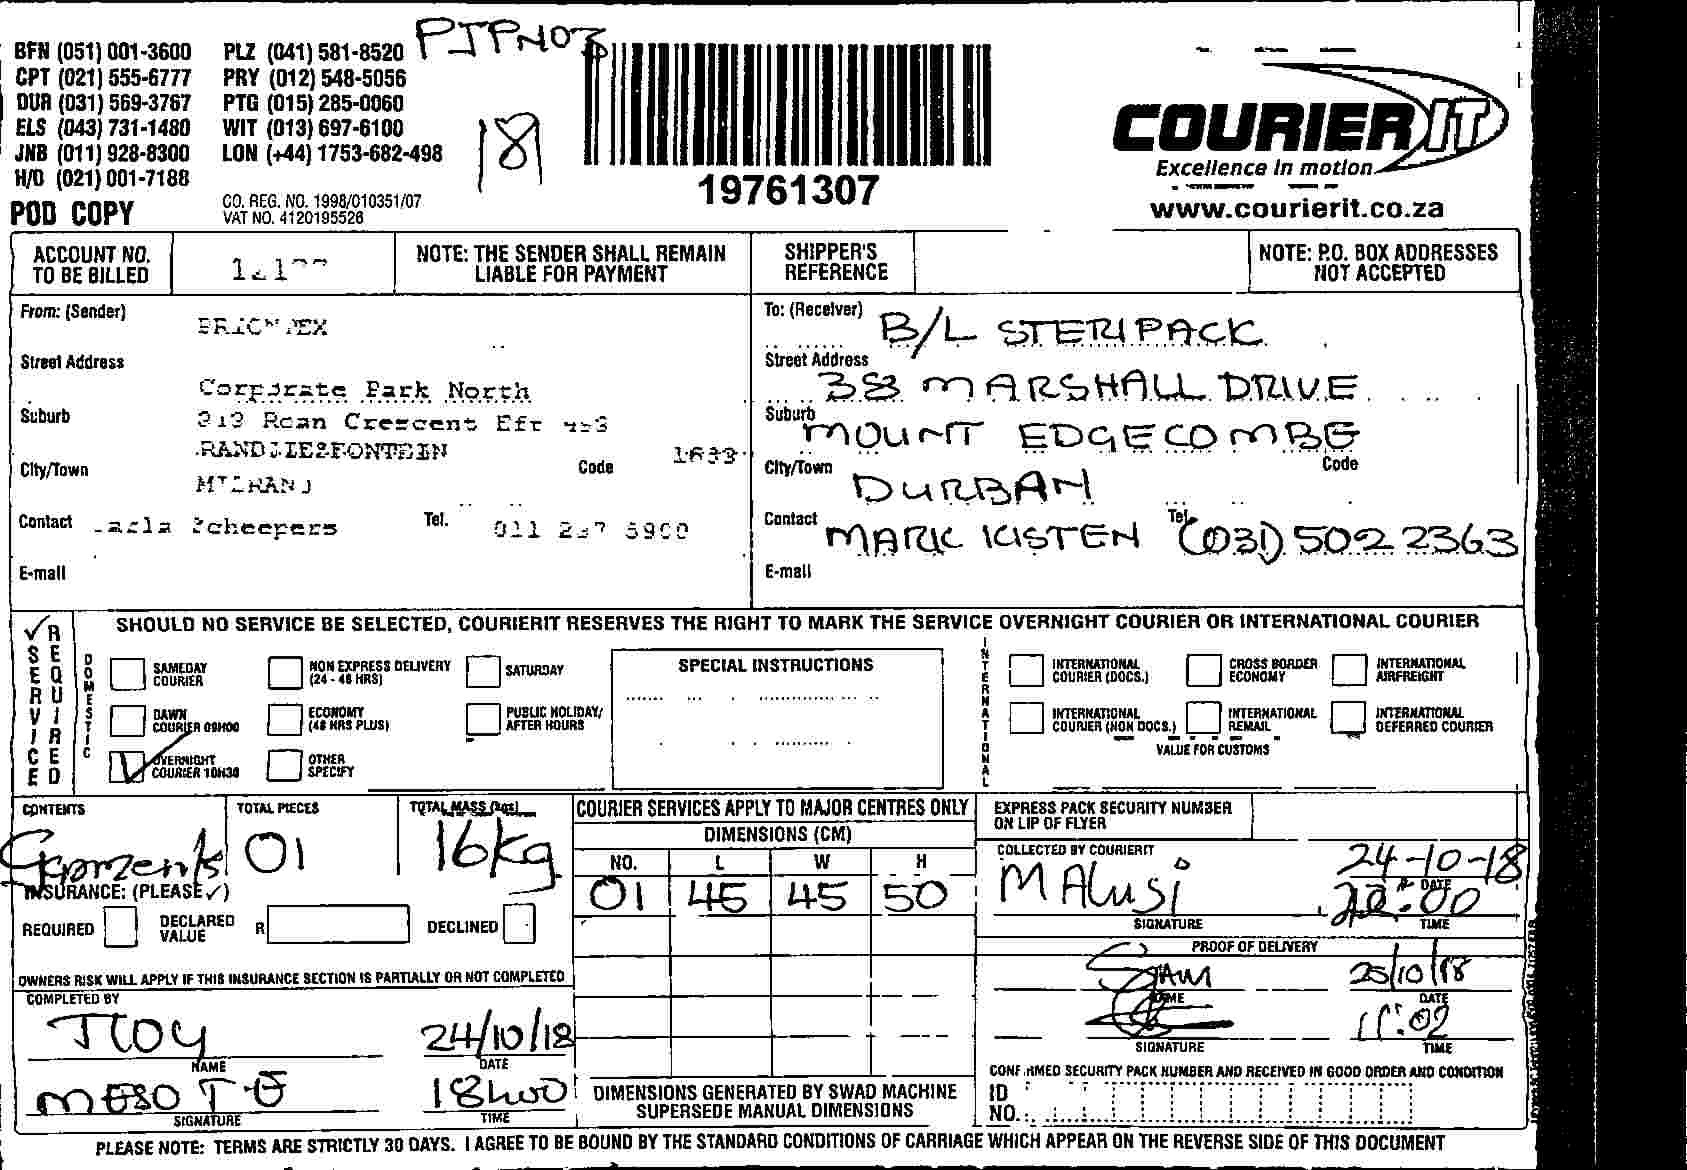 BFN (051) 001-3600 PLZ (041) 581-8520
CPT (021) 555-6777 PRY (012) 548-5056
DUR (031) 569-3767 PTG (015) 285-0060
ELS (043) 731-1480 WIT (013) 697-6100
JNB (011) 928-8300 LON (+44) 1753-682-498
H/O (021) 001-7188
POD COPY
CO. REG. NO. 1998/010351/07
VAT NO. 4120195526
18
19761307
COURIER IT
Excellence in motion
www.courierit.co.za
ACCOUNT NO. TO BE BILLED
NOTE: THE SENDER SHALL REMAIN LIABLE FOR PAYMENT
SHIPPER'S REFERENCE
NOTE: P.O. BOX ADDRESSES NOT ACCEPTED
From: (Sender)
Street Address
Corporate Park North
Suburb
Crescent
City/Town
Code
Contact Scheepers Tel. 011
E-mail
To: (Receiver) B/L STERIPACK
Street Address 38 MARSHALL DRIVE
Suburb MOUNT EDGECOMBE
City/Town DURBAN Code
Contact MARK KISTEN Tel. (031) 502 2363
E-mail
SERVICE REQUIRED
SHOULD NO SERVICE BE SELECTED, COURIERIT RESERVES THE RIGHT TO MARK THE SERVICE OVERNIGHT COURIER OR INTERNATIONAL COURIER
DOMESTIC
SAMEDAY COURIER
NON EXPRESS DELIVERY (24 - 48 HRS)
SATURDAY
DAWN COURIER 09H00
ECONOMY (48 HRS PLUS)
PUBLIC HOLIDAY/ AFTER HOURS
OVERNIGHT COURIER 10H30
OTHER SPECIFY
SPECIAL INSTRUCTIONS
INTERNATIONAL
INTERNATIONAL COURIER (DOCS.)
CROSS BORDER ECONOMY
INTERNATIONAL AIRFREIGHT
INTERNATIONAL COURIER (NON DOCS.)
INTERNATIONAL REMAIL
INTERNATIONAL DEFERRED COURIER
VALUE FOR CUSTOMS
CONTENTS
Garments
TOTAL PIECES
01
TOTAL MASS (kgs)
16kg
INSURANCE: (PLEASE ✓)
REQUIRED
DECLARED VALUE R
DECLINED
OWNERS RISK WILL APPLY IF THIS INSURANCE SECTION IS PARTIALLY OR NOT COMPLETED
COMPLETED BY
24/10/18
NAME DATE
18h00
SIGNATURE TIME
COURIER SERVICES APPLY TO MAJOR CENTRES ONLY
DIMENSIONS (CM)
NO. L W H
01 45 45 50
DIMENSIONS GENERATED BY SWAD MACHINE SUPERSEDE MANUAL DIMENSIONS
EXPRESS PACK SECURITY NUMBER ON LIP OF FLYER
COLLECTED BY COURIERIT
MAlusi 24-10-18
DATE
SIGNATURE TIME
PROOF OF DELIVERY
25/10/18
NAME DATE
11:02
SIGNATURE TIME
CONFIRMED SECURITY PACK NUMBER AND RECEIVED IN GOOD ORDER AND CONDITION
ID NO.:
PLEASE NOTE: TERMS ARE STRICTLY 30 DAYS. I AGREE TO BE BOUND BY THE STANDARD CONDITIONS OF CARRIAGE WHICH APPEAR ON THE REVERSE SIDE OF THIS DOCUMENT